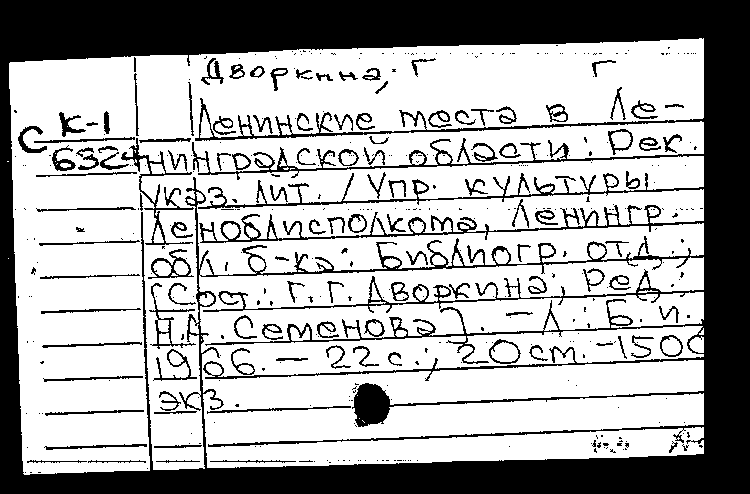 Дворкина, Г Г
Ленинские места в Ле-
К-1
С 6324 нинградской области: Рек.
указ. лит. / Упр. культуры
Леноблисполкома, Ленингр.
обл. б-ка: Библиогр. отд.;
[Сост.: Г. Г. Дворкина; Ред.:
Н.А. Семенова]. - Л.: Б. и.,
1966. - 22 с.; 20 см. - 1500
экз.